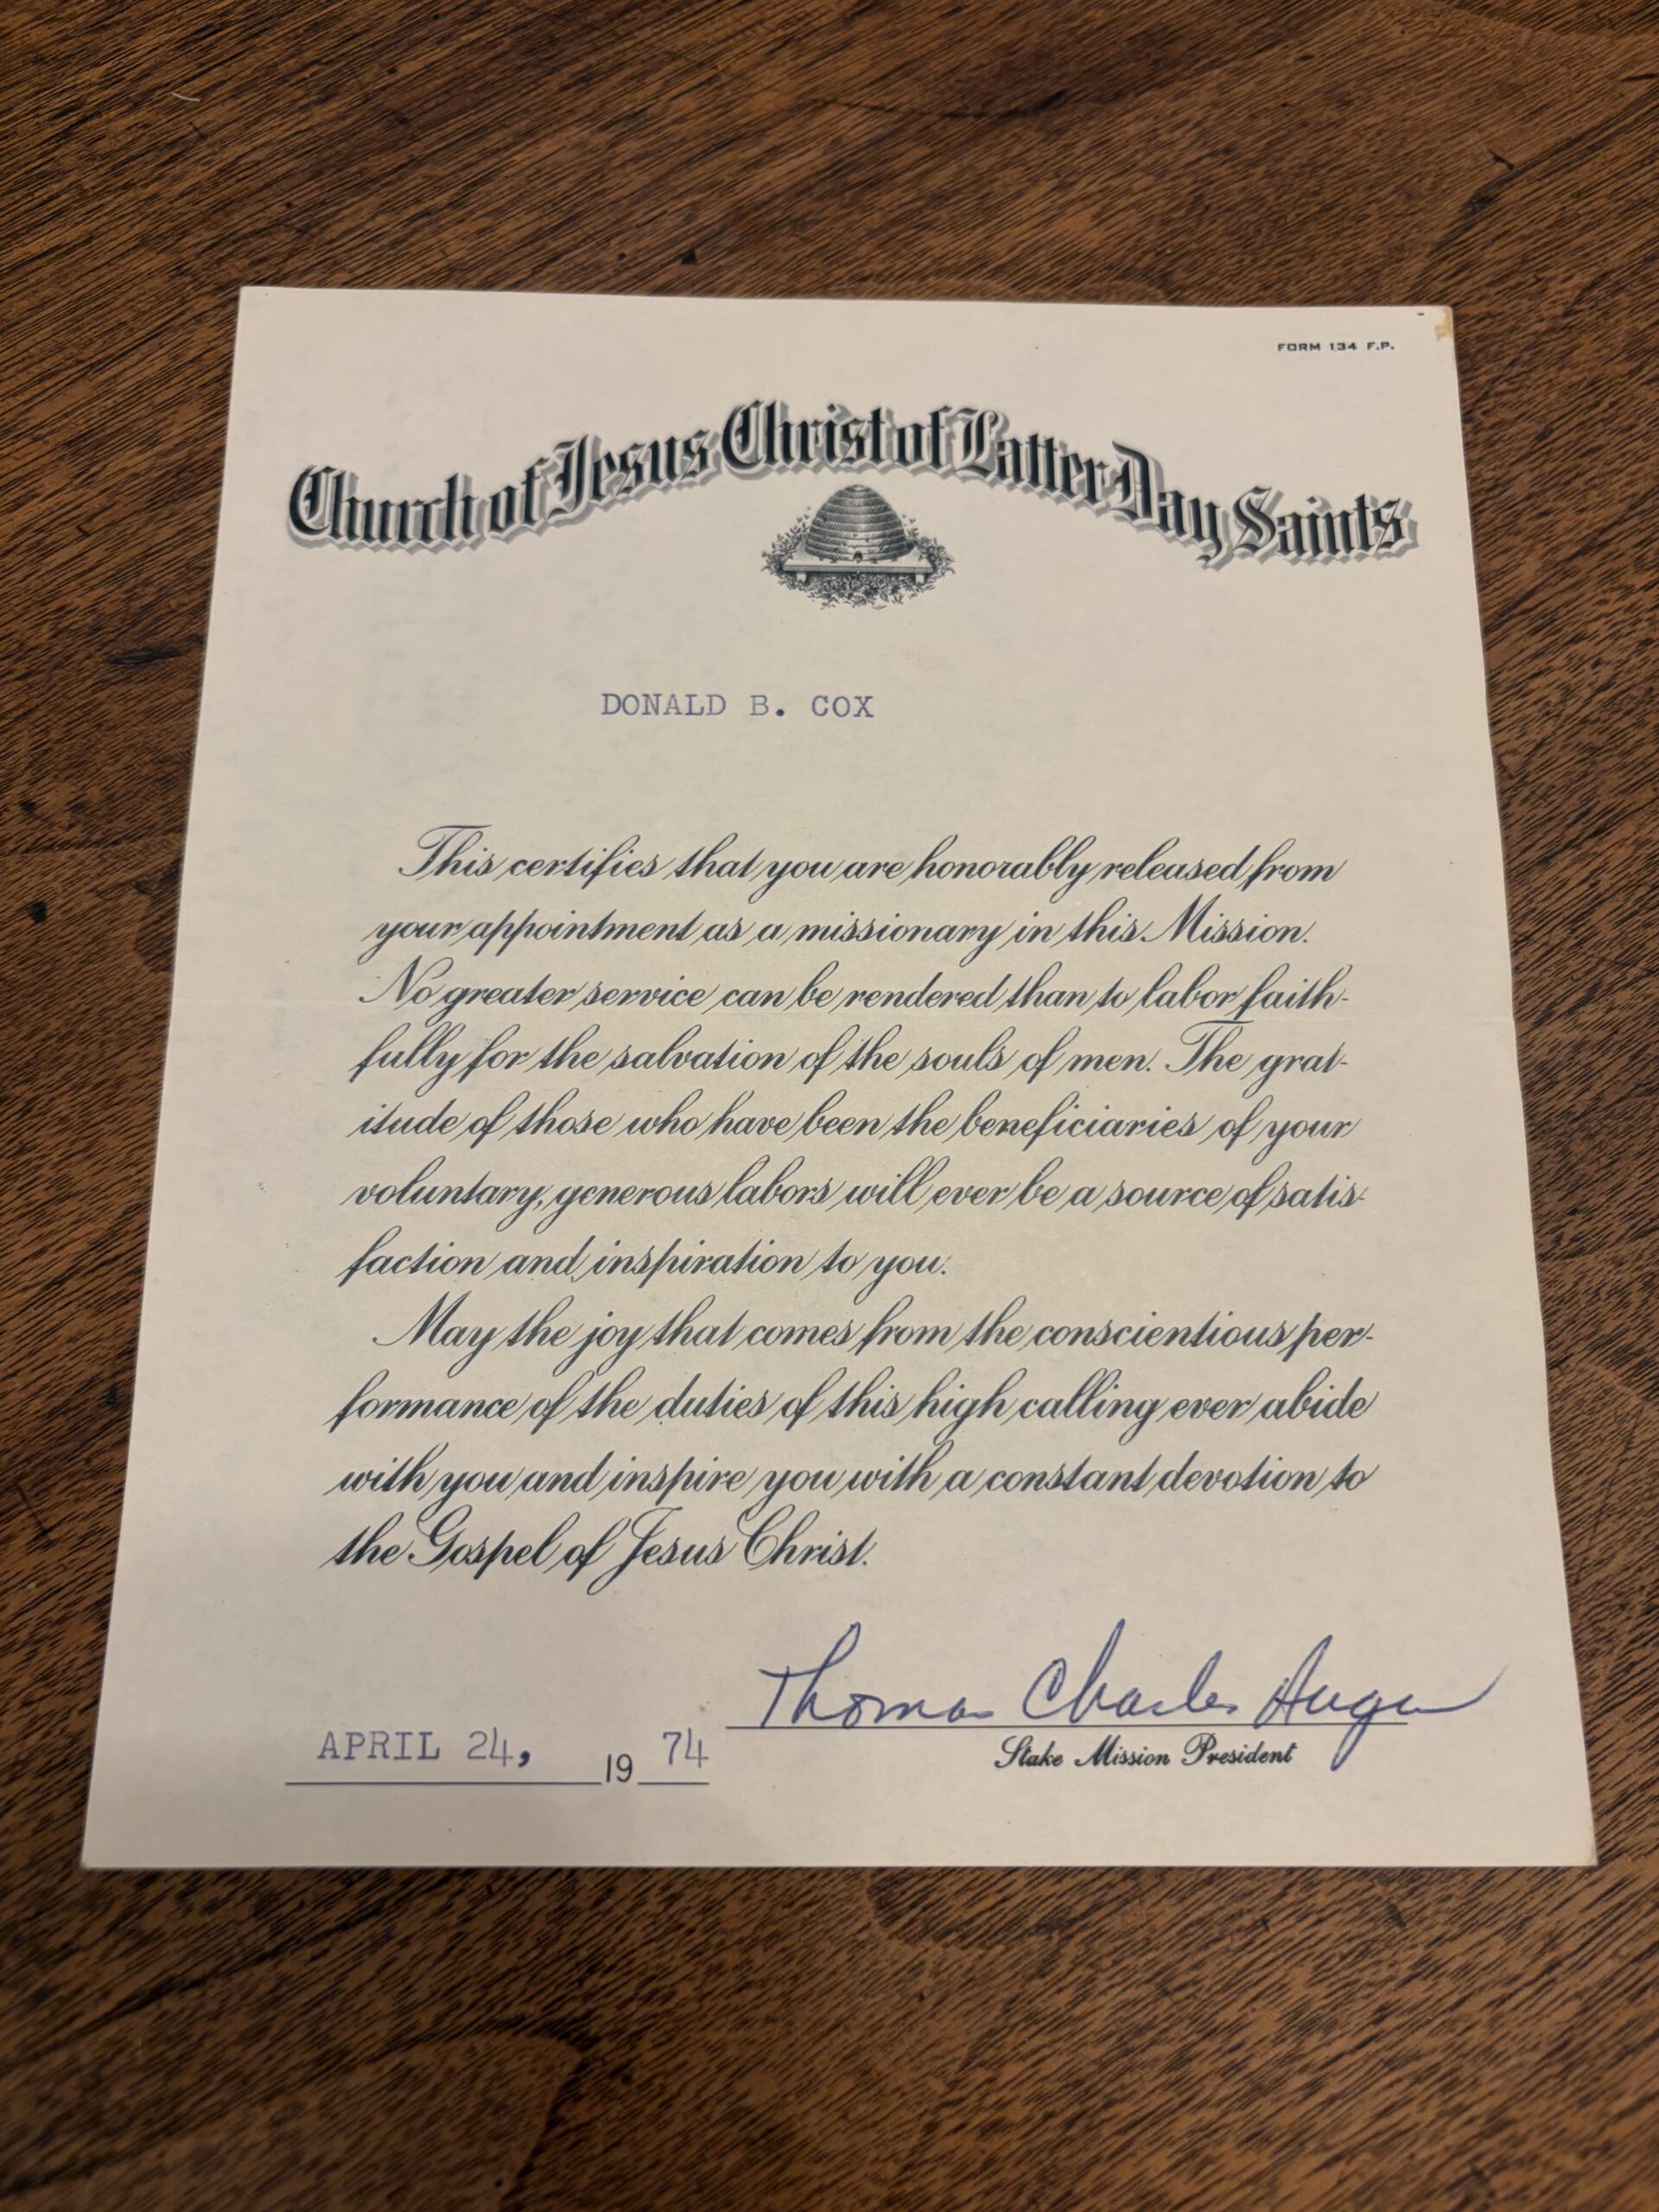 FORM 134 F.P.
Church of Jesus Christ of Latter Day Saints
DONALD B. COX
This certifies that you are honorably released from
your appointment as a missionary in this Mission.
No greater service can be rendered than to labor faith-
fully for the salvation of the souls of men. The grat-
itude of those who have been the beneficiaries of your
voluntary, generous labors will ever be a source of satis-
faction and inspiration to you.
May the joy that comes from the conscientious per-
formance of the duties of this high calling ever abide
with you and inspire you with a constant devotion to
the Gospel of Jesus Christ.
Thomas Charles
APRIL 24, 19 74
Stake Mission President